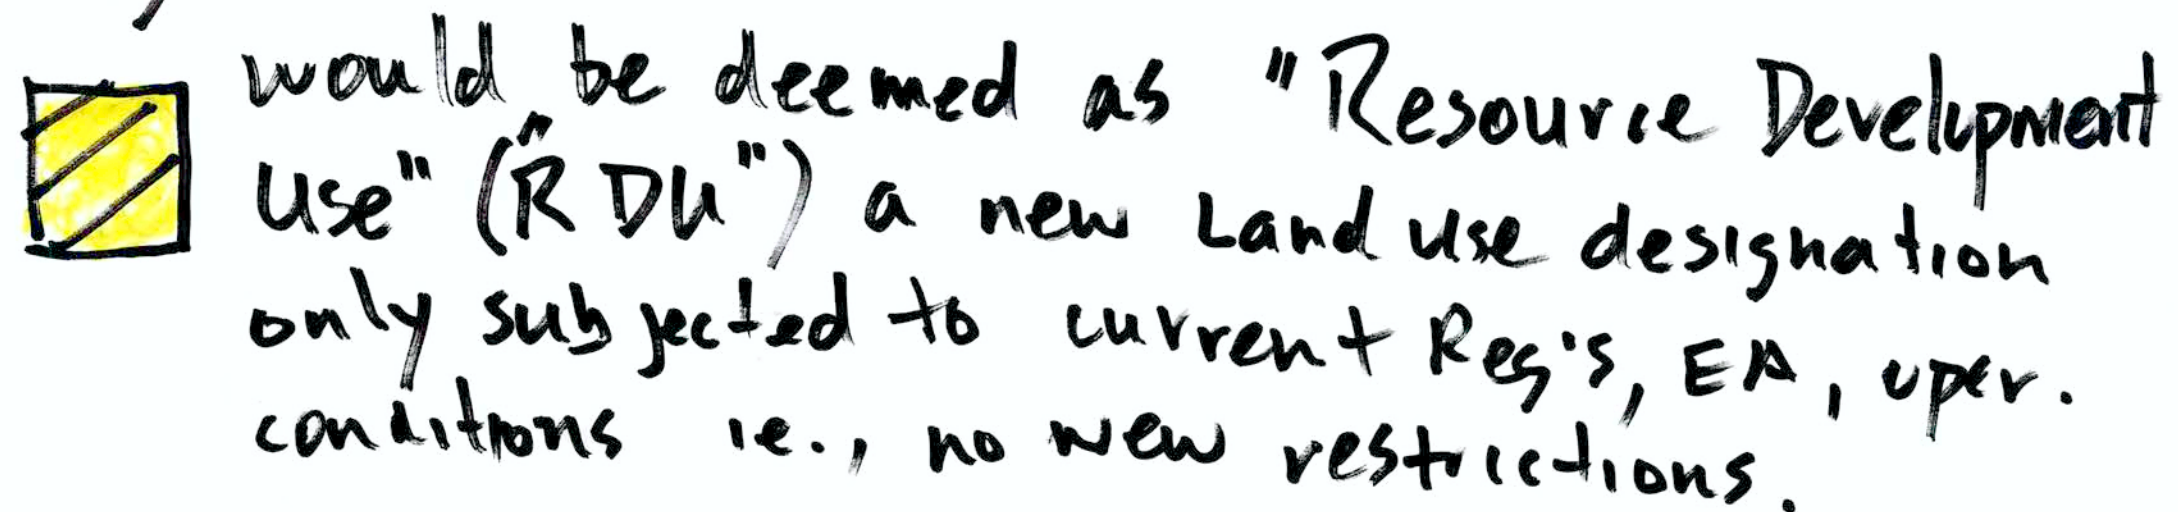 would be deemed as "Resource Development
Use" ("RDU") a new Land Use designation
only subjected to current Reg's, EA, oper.
conditions ie., no new restrictions.